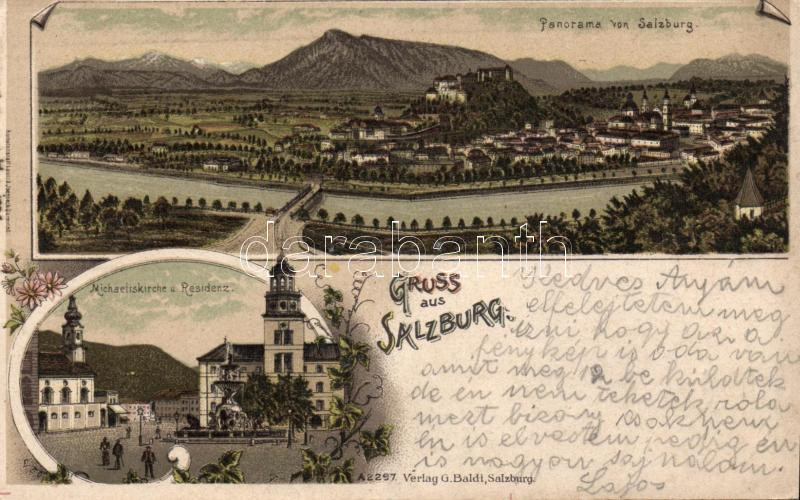 Panorama von Salzburg.
Michaeliskirche u. Residenz.
GRUSS
aus
SALZBURG.
darabanth
Kedves Anyám
elfelejtetem meg
irni hogy az a
fénykép is oda van
amit meg 12 be küldtek
de én nem tehetek róla
mert bizony csak
én is elvettem pedig én
is nagyon sajnálom.
Lajos
A 2297. Verlag G. Baldi, Salzburg.